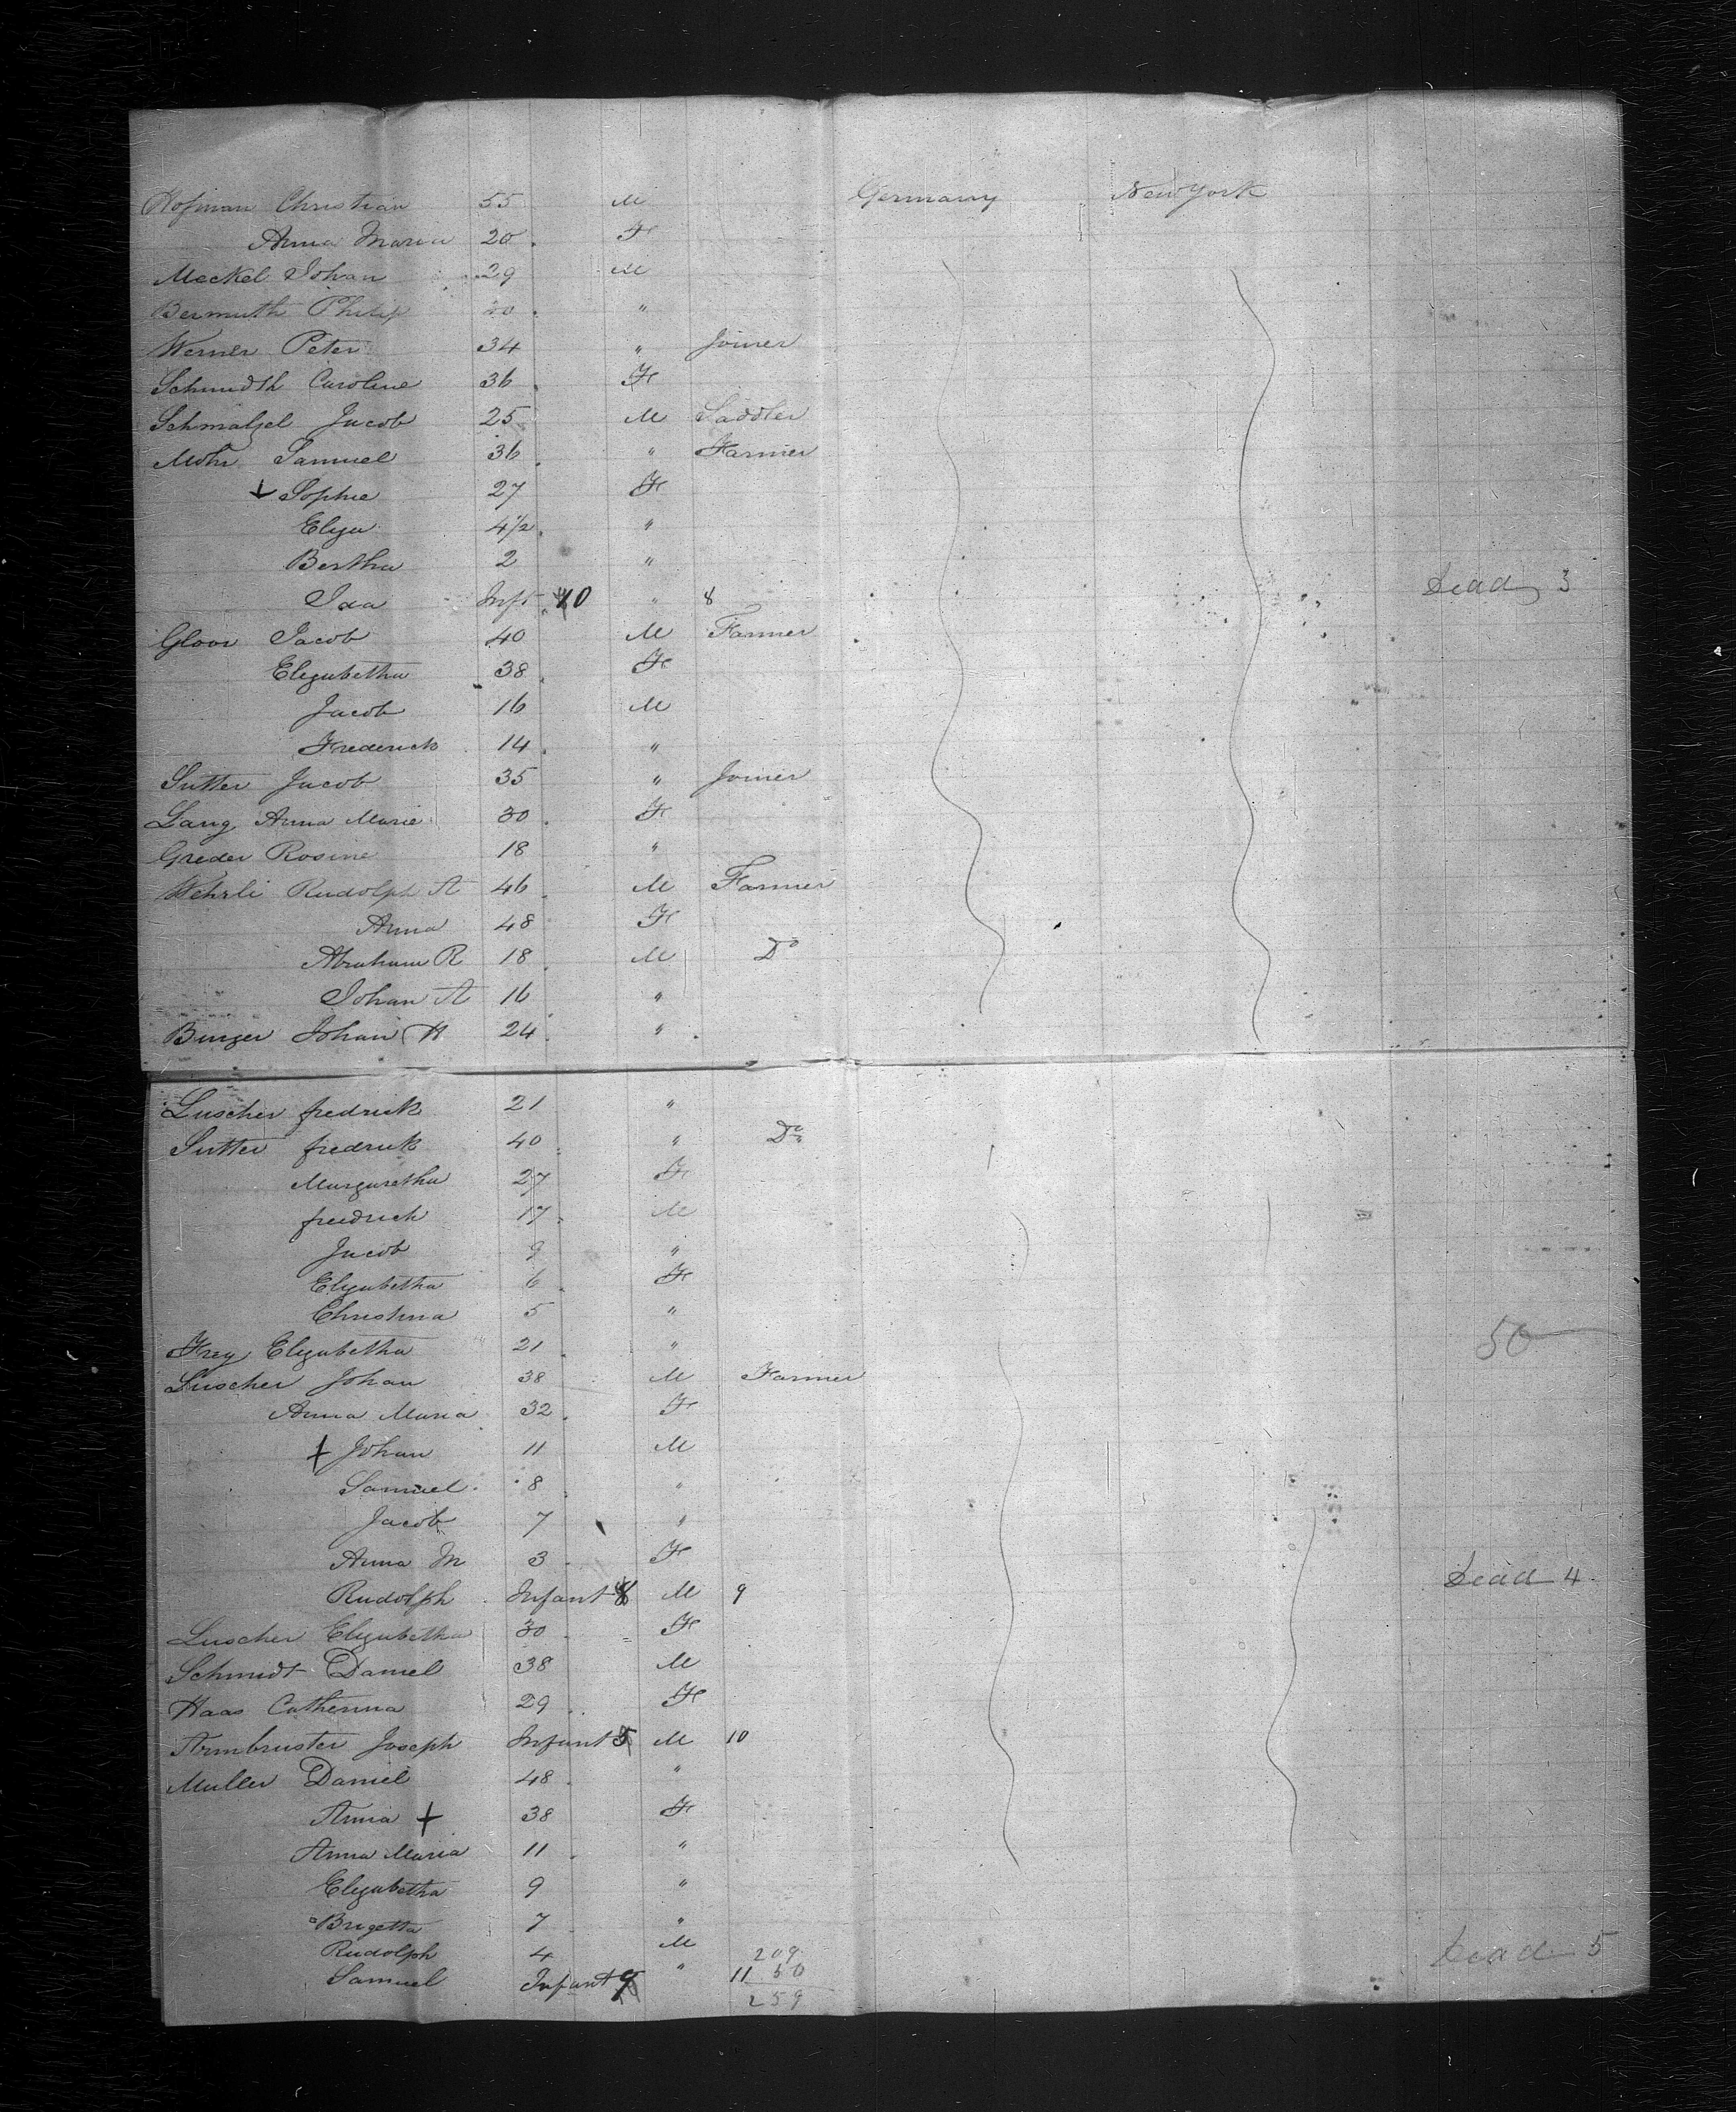 Hofman Christian 55 M Germany New York
Anna Maria 20 F
Meckel Johan 29 M
Bermuth Philip 20 "
Werner Peter 34 " Joiner
Schmidth Caroline 36 F
Schmalzel Jacob 25 M Saddler
Mohr Samuel 36 " Farmer
+ Sophie 27 F
Eliza 4½ "
Bertha 2 "
Ida Inft 10 " 8 Dead 3
Gloor Jacob 40 M Farmer
Elizabetha 38 F
Jacob 16 M
Frederick 14 "
Sutter Jacob 35 " Joiner
Lang Anna Marie 30 F
Greder Rosine 18 "
Wehrli Rudolph A 46 M Farmer
Anna 48 F
Abraham R 18 M Do
Johan A 16 "
Burger Johan H 24 "
Luscher fredrick 21 "
Sutter fredrick 40 " Do
Margaretha 27 F
friedrich 17 M
Jacob 9 "
Elizabetha 6 F
Christina 5 "
Frey Elizabetha 21 " 50
Luscher Johan 38 M Farmer
Anna Maria 32 F
+ Johan 11 M
Samuel 8 "
Jacob 7 "
Anna M 3 F
Rudolph Infant 8 M 9 Dead 4
Luscher Elizabetha 30 F
Schmidt Daniel 38 M
Haas Catherina 29 F
Armbruster Joseph Infant 5 M 10
Muller Daniel 48 "
Anna + 38 F
Anna Maria 11 "
Elizabetha 9 "
Brigetta 7 "
Rudolph 4 M 209 Dead 5
Samuel Infant 9 " 11 50
259